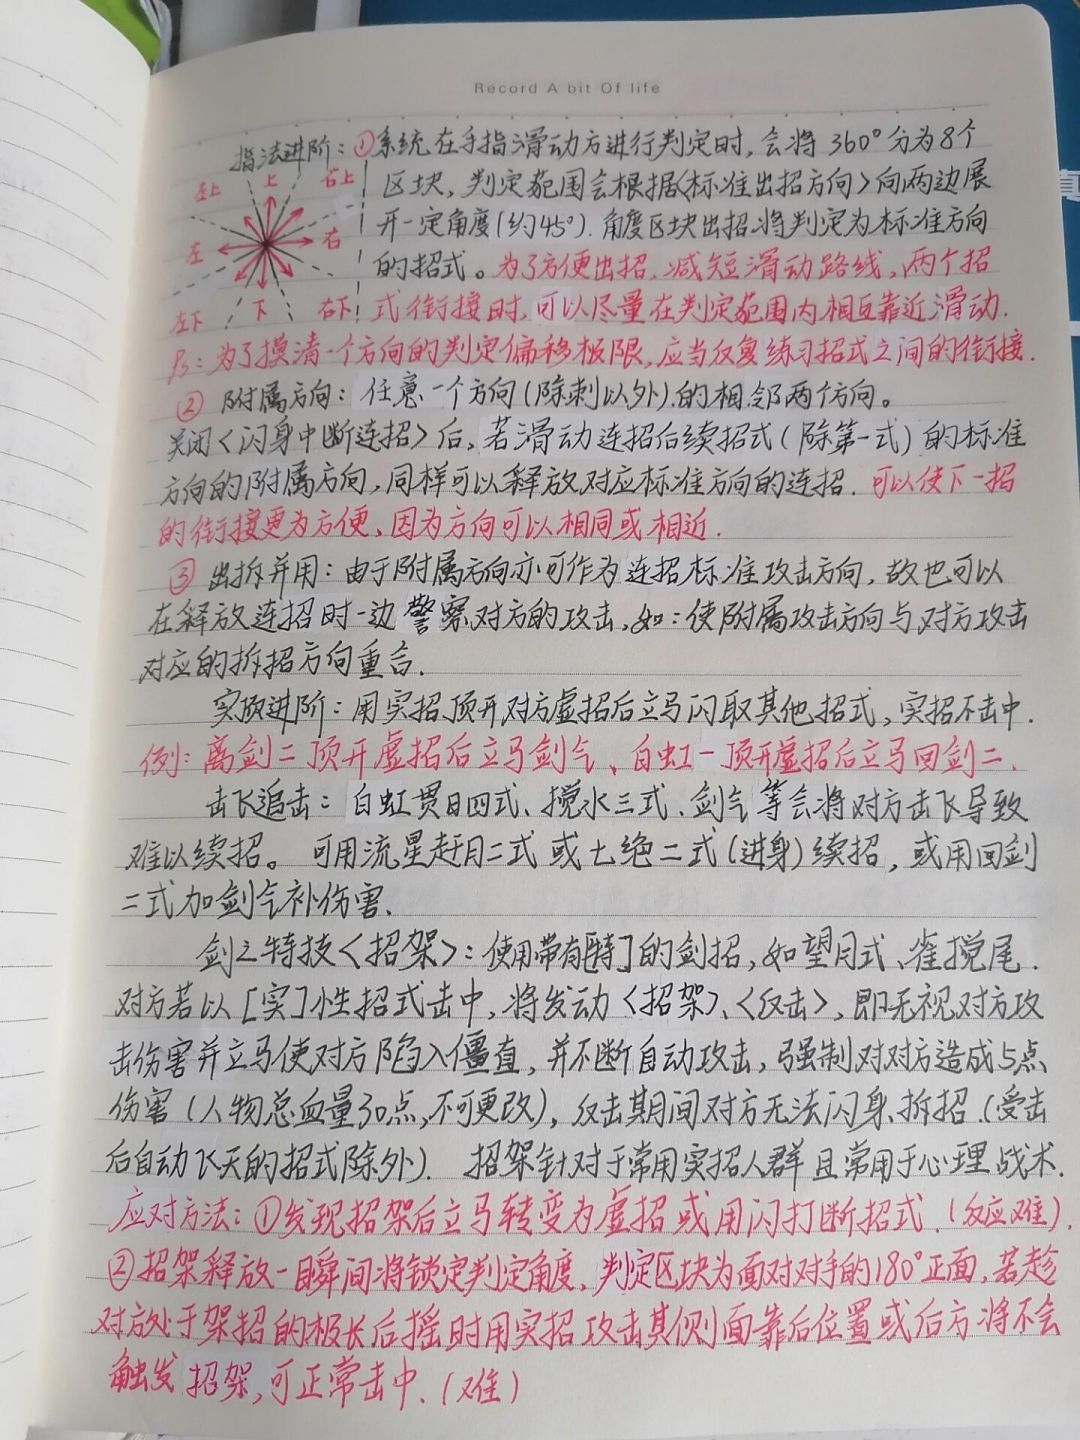 Record A bit Of life
指法进阶：①系统在手指滑动方进行判定时，会将360°分为8个
左上 上 右上
区块，判定范围会根据〈标准出招方向〉向两边展
开一定角度(约45°).角度区块出招将判定为标准方向
左 右
的招式。为了方便出招，减短滑动路线，两个招
左下 下 右下
式衔接时，可以尽量在判定范围内相互靠近滑动.
Ps：为了摸清一个方向的判定偏移极限，应当反复练习招式之间的衔接.
② 附属方向：任意一个方向(除刺以外)的相邻两个方向。
关闭〈闪身中断连招〉后，若滑动连招后续招式(除第一式)的标准
方向的附属方向，同样可以释放对应标准方向的连招.可以使下一招
的衔接更为方便、因为方向可以相同或相近.
③ 出拆并用：由于附属方向亦可作为连招标准攻击方向，故也可以
在释放连招时一边警察对方的攻击，如：使附属攻击方向与对方攻击
对应的拆招方向重合.
实战进阶：用实招顶开对方虚招后立马闪取其他招式，实招不击中.
例：离剑二顶开虚招后立马剑气、白虹一顶开虚招后立马回剑二.
击飞追击：白虹贯日四式、搅水三式、剑气等会将对方击飞导致
难以续招。可用流星赶月二式或七绝二式(进身)续招，或用回剑
二式加剑气补伤害.
剑之特技〈招架〉：使用带有[特]的剑招，如望月式、雀搅尾.
对方若以[实]小性招式击中，将发动〈招架〉、〈反击〉，即无视对方攻
击伤害并立马使对方陷入僵直，并不断自动攻击，强制对对方造成5点
伤害(人物总血量30点,不可更改)，反击期间对方无法闪身、拆招.(受击
后自动飞天的招式除外). 招架针对于常用实招人群且常用于心理战术.
应对方法：①发现招架后立马转变为虚招或用闪打断招式.(反应难).
②招架释放一瞬间将锁定判定角度，判定区块为面对对手的180°正面，若趁
对方处于架招的极长后摇时用实招攻击其侧面靠后位置或后方将不会
触发招架，可正常击中.(难)